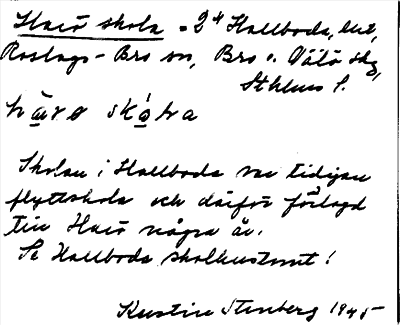 Harö skola = 2 4 Hallboda, lät,
Roslags-Bro sn, Bro o. Vätö skg,
Sthlms l.
hàrö skóla
Skolan i Hallboda var tidigare
flyttskola och därför förlagd
till Harö några år.
Se Hallboda skolhustomt!
Kerstin Stenberg 1945